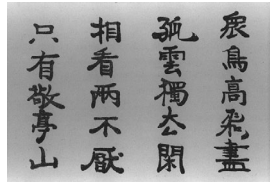 眾鳥高飛盡
孤雲獨去閑
相看兩不厭
只有敬亭山